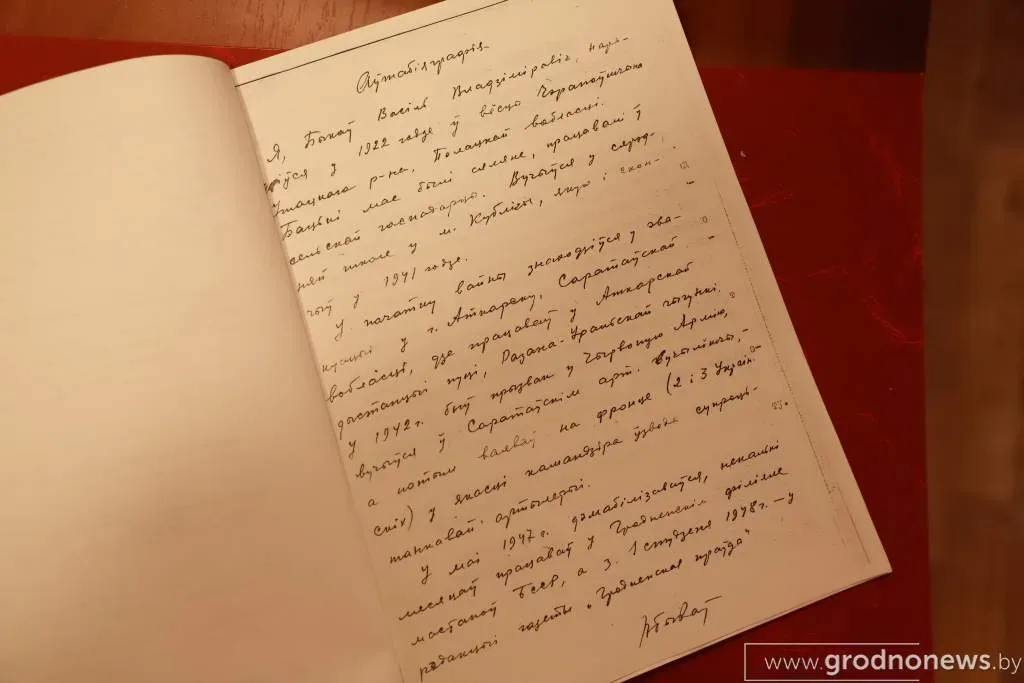 Аўтабіяграфія
Я, Быкаў Васіль Владзіміравіч, нара-
дзіўся у 1922 годзе ў вёсцы
Ушацкого р-на, Полацкай вобласці.
Бацькі мае былі сяляне, працавалі ў
сельскай гаспадарцы. Вучыўся у сярэд-
няй школе у м. Кублічы, якую і скон-
чыў у 1941 годзе.
У пачатку вайны знаходзіўся у эва-
куацыі у г. Аткарску, Саратаўскай
вобласці, дзе працаваў у Аткарскай
дыстанцыі пуці, Разана-Уральскай чыгункі.
У 1942 г. быў прызван у Чырвоную Армію,
вучыўся ў Саратаўскім арт. вучылішчы,
а потым ваяваў на фронце (2 і 3 Украін-
скіх) у якасці камандзіра ўзвода супраць-
танкавай артылерыі.
У маі 1947 г. дэмабілізаваўся, некалькі
месяцаў працаваў у Гродненскім філіяле
мастакоў БССР, а з 1 студзеня 1948 г. – у
рэдакцыі газеты „Гродненская праўда"
ВБыкаў
www.grodnonews.by